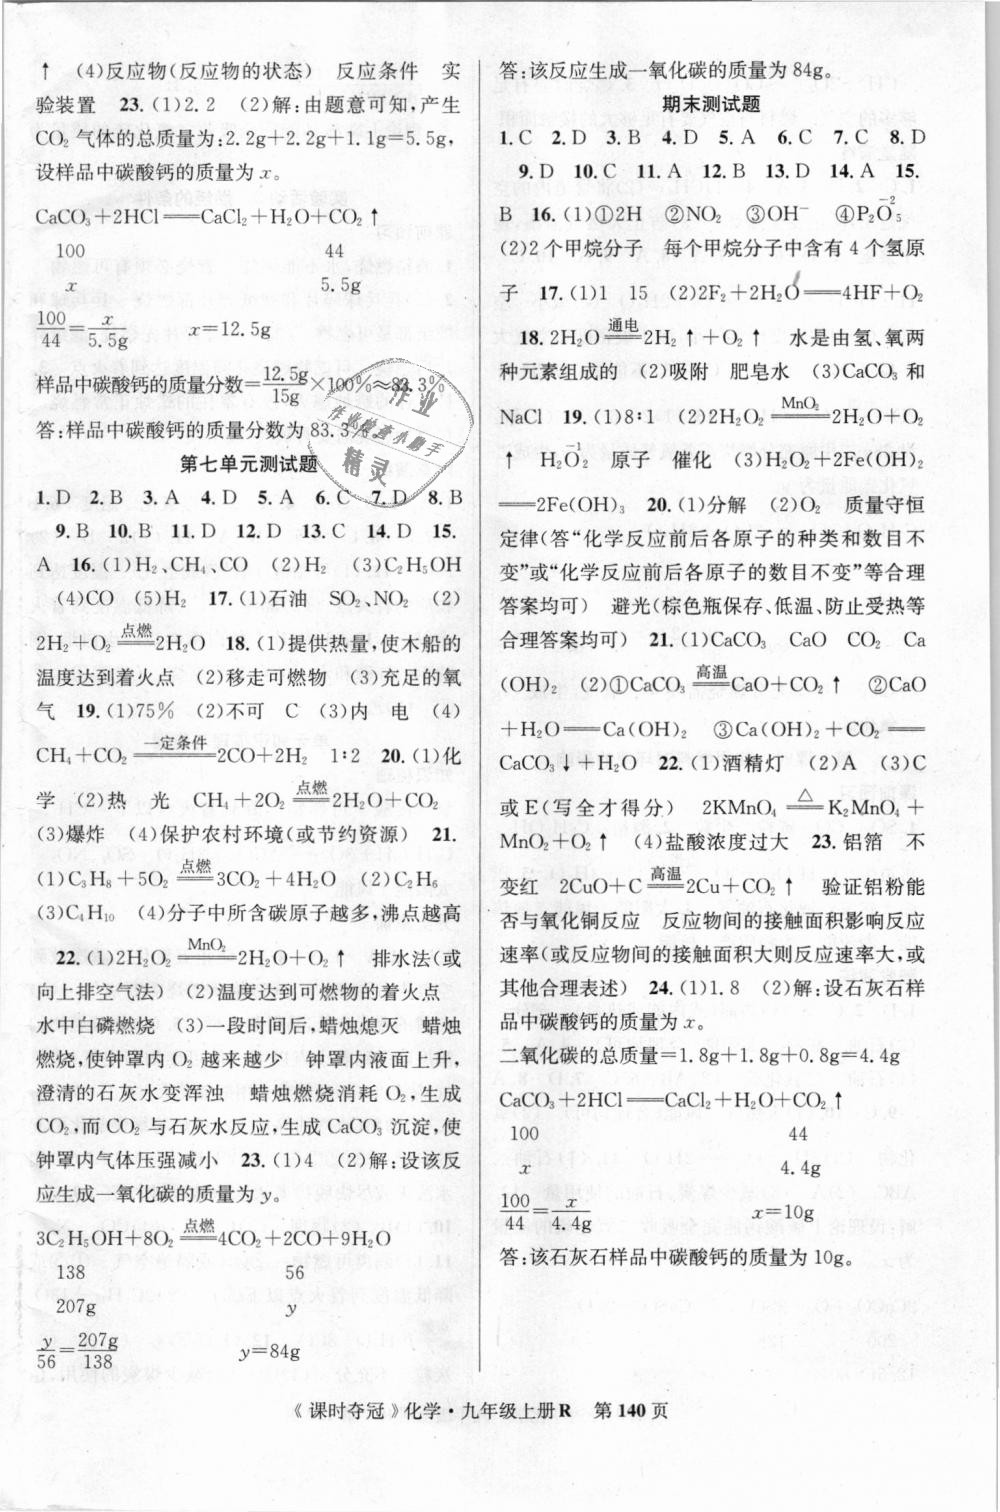 ↑ (4)反应物(反应物的状态) 反应条件 实
验装置 23.(1)2.2 (2)解:由题意可知,产生
CO₂气体的总质量为:2.2g+2.2g+1.1g=5.5g,
设样品中碳酸钙的质量为x。
CaCO₃+2HCl══CaCl₂+H₂O+CO₂↑
100 44
x 5.5g
100/44=x/5.5g x=12.5g
样品中碳酸钙的质量分数=12.5g/15g×100%≈83.3%
答:样品中碳酸钙的质量分数为83.3%
第七单元测试题
1.D 2.B 3.A 4.D 5.A 6.C 7.D 8.B
9.B 10.B 11.D 12.D 13.C 14.D 15.
A 16.(1)H₂、CH₄、CO (2)H₂ (3)C₂H₅OH
(4)CO (5)H₂ 17.(1)石油 SO₂、NO₂ (2)
2H₂+O₂ 点燃══ 2H₂O 18.(1)提供热量,使木船的
温度达到着火点 (2)移走可燃物 (3)充足的氧
气 19.(1)75% (2)不可 C (3)内 电 (4)
CH₄+CO₂ 一定条件══ 2CO+2H₂ 1:2 20.(1)化
学 (2)热 光 CH₄+2O₂ 点燃══ 2H₂O+CO₂
(3)爆炸 (4)保护农村环境(或节约资源) 21.
(1)C₃H₈+5O₂ 点燃══ 3CO₂+4H₂O (2)C₂H₆
(3)C₄H₁₀ (4)分子中所含碳原子越多,沸点越高
22.(1)2H₂O₂ MnO₂══ 2H₂O+O₂↑ 排水法(或
向上排空气法) (2)温度达到可燃物的着火点
水中白磷燃烧 (3)一段时间后,蜡烛熄灭 蜡烛
燃烧,使钟罩内O₂越来越少 钟罩内液面上升,
澄清的石灰水变浑浊 蜡烛燃烧消耗O₂,生成
CO₂,而CO₂与石灰水反应,生成CaCO₃沉淀,使
钟罩内气体压强减小 23.(1)4 (2)解:设该反
应生成一氧化碳的质量为y。
3C₂H₅OH+8O₂ 点燃══ 4CO₂+2CO+9H₂O
138 56
207g y
y/56=207g/138 y=84g
答:该反应生成一氧化碳的质量为84g。
期末测试题
1.C 2.D 3.B 4.D 5.A 6.C 7.C 8.D
9.D 10.C 11.A 12.B 13.D 14.A 15.
B 16.(1)①2H ②NO₂ ③OH⁻ ④P₂O₅ -2
(2)2个甲烷分子 每个甲烷分子中含有4个氢原
子 17.(1)1 15 (2)2F₂+2H₂O══4HF+O₂
18.2H₂O 通电══ 2H₂↑+O₂↑ 水是由氢、氧两
种元素组成的 (2)吸附 肥皂水 (3)CaCO₃和
NaCl 19.(1)8:1 (2)2H₂O₂ MnO₂══ 2H₂O+O₂
↑ H₂O₂ -1 原子 催化 (3)H₂O₂+2Fe(OH)₂
══2Fe(OH)₃ 20.(1)分解 (2)O₂ 质量守恒
定律(答“化学反应前后各原子的种类和数目不
变”或“化学反应前后各原子的数目不变”等合理
答案均可) 避光(棕色瓶保存、低温、防止受热等
合理答案均可) 21.(1)CaCO₃ CaO CO₂ Ca
(OH)₂ (2)①CaCO₃ 高温══ CaO+CO₂↑ ②CaO
+H₂O══Ca(OH)₂ ③Ca(OH)₂+CO₂══
CaCO₃↓+H₂O 22.(1)酒精灯 (2)A (3)C
或E(写全才得分) 2KMnO₄ △══ K₂MnO₄+
MnO₂+O₂↑ (4)盐酸浓度过大 23.铝箔 不
变红 2CuO+C 高温══ 2Cu+CO₂↑ 验证铝粉能
否与氧化铜反应 反应物间的接触面积影响反应
速率(或反应物间的接触面积大则反应速率大,或
其他合理表述) 24.(1)1.8 (2)解:设石灰石样
品中碳酸钙的质量为x。
二氧化碳的总质量=1.8g+1.8g+0.8g=4.4g
CaCO₃+2HCl══CaCl₂+H₂O+CO₂↑
100 44
x 4.4g
100/44=x/4.4g x=10g
答:该石灰石样品中碳酸钙的质量为10g。
作业
作业检查小助手
精灵
《课时夺冠》化学·九年级上册R 第140页